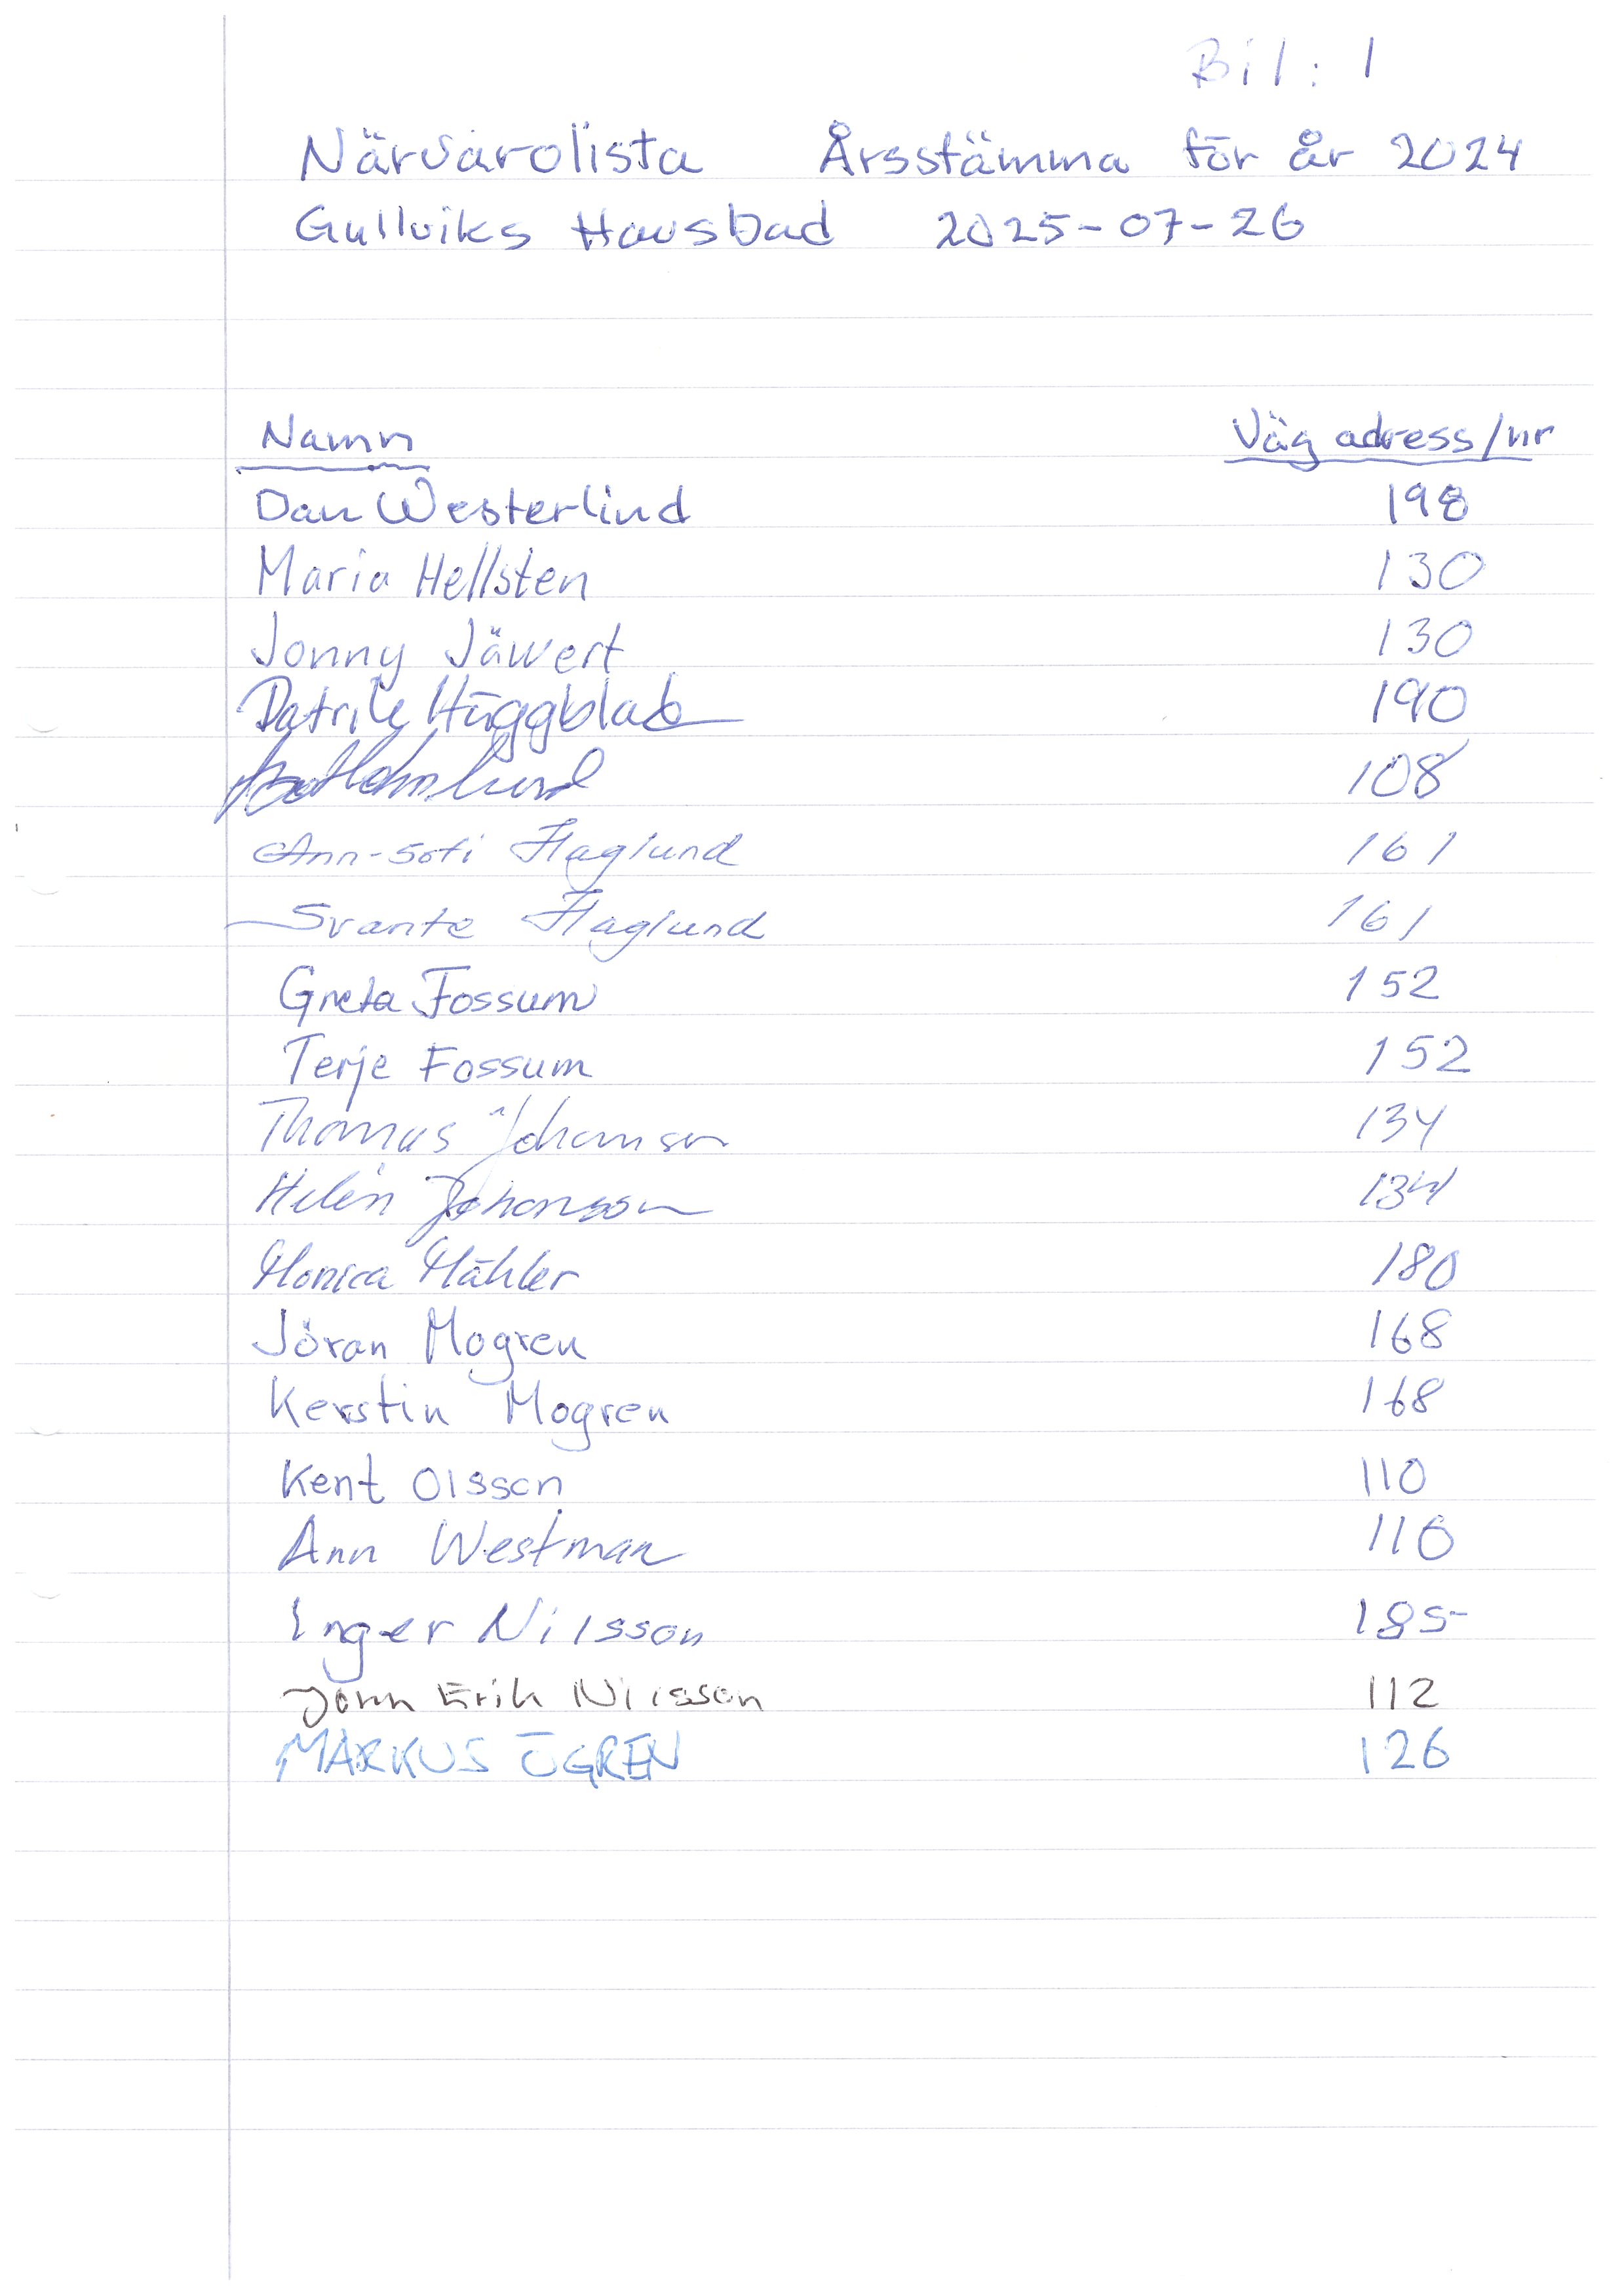 Bil: 1
Närvarolista Årsstämma för år 2024
Gullviks Havsbad 2025-07-26
Namn Väg adress/nr
Dan Westerlind 198
Maria Hellsten 130
Jonny Jäwert 130
Patrik Häggblad 190
108
Ann-Sofi Haglund 161
Svante Haglund 161
Greta Fossum 152
Terje Fossum 152
Thomas Johansson 134
Helén Johansson 134
Monica Mähler 180
Jöran Mogren 168
Kerstin Mogren 168
Kent Olsson 110
Ann Westman 110
Inger Nilsson 185
John Erik Nilsson 112
MARKUS ÖGREN 126